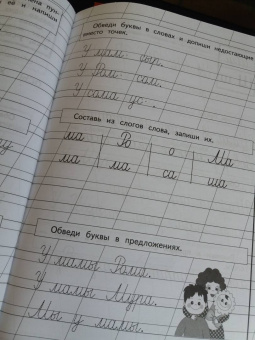 Обведи буквы в словах и допиши недостающие
вместо точек.
У мам сын.
У Ром сом.
У сома ус .
Составь из слогов слова, запиши их.
ма Ро о Ма
ма ма са ша
Обведи буквы в предложениях.
У мамы Рома.
У мамы Мура.
Мы у мамы.